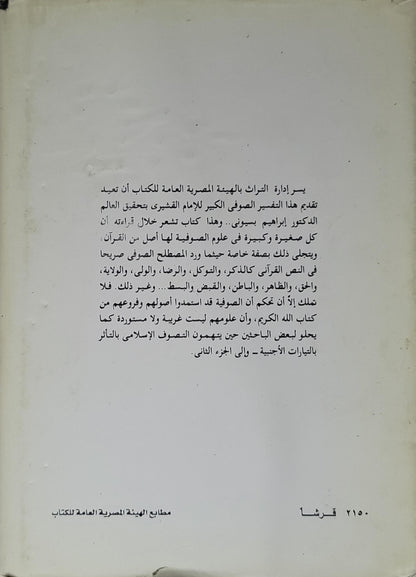 يسر إدارة التراث بالهيئة المصرية العامة للكتاب أن تعيد
تقديم هذا التفسير الصوفى الكبير للإمام القشيرى بتحقيق العالم
الدكتور إبراهيم بسيونى.. وهذا كتاب تشعر خلال قراءته أن
كل صغيرة وكبيرة فى علوم الصوفية لها أصل من القرآن،
ويتجلى ذلك بصفة خاصة حيثما ورد المصطلح الصوفى صريحا
فى النص القرآنى كالذكر، والتوكل، والرضا، والولى، والولاية،
والحق، والظاهر، والباطن، والقبض والبسط... وغير ذلك. فلا
تملك إلاّ أن تحكم أن الصوفية قد استمدوا أصولهم وفروعهم من
كتاب الله الكريم، وأن علومهم ليست غريبة ولا مستوردة كما
يحلو لبعض الباحثين حين يتهمون التصوف الإسلامى بالتأثر
بالتيارات الأجنبية ــ وإلى الجزء الثانى.
٢١٥٠ قرشا
مطابع الهيئة المصرية العامة للكتاب